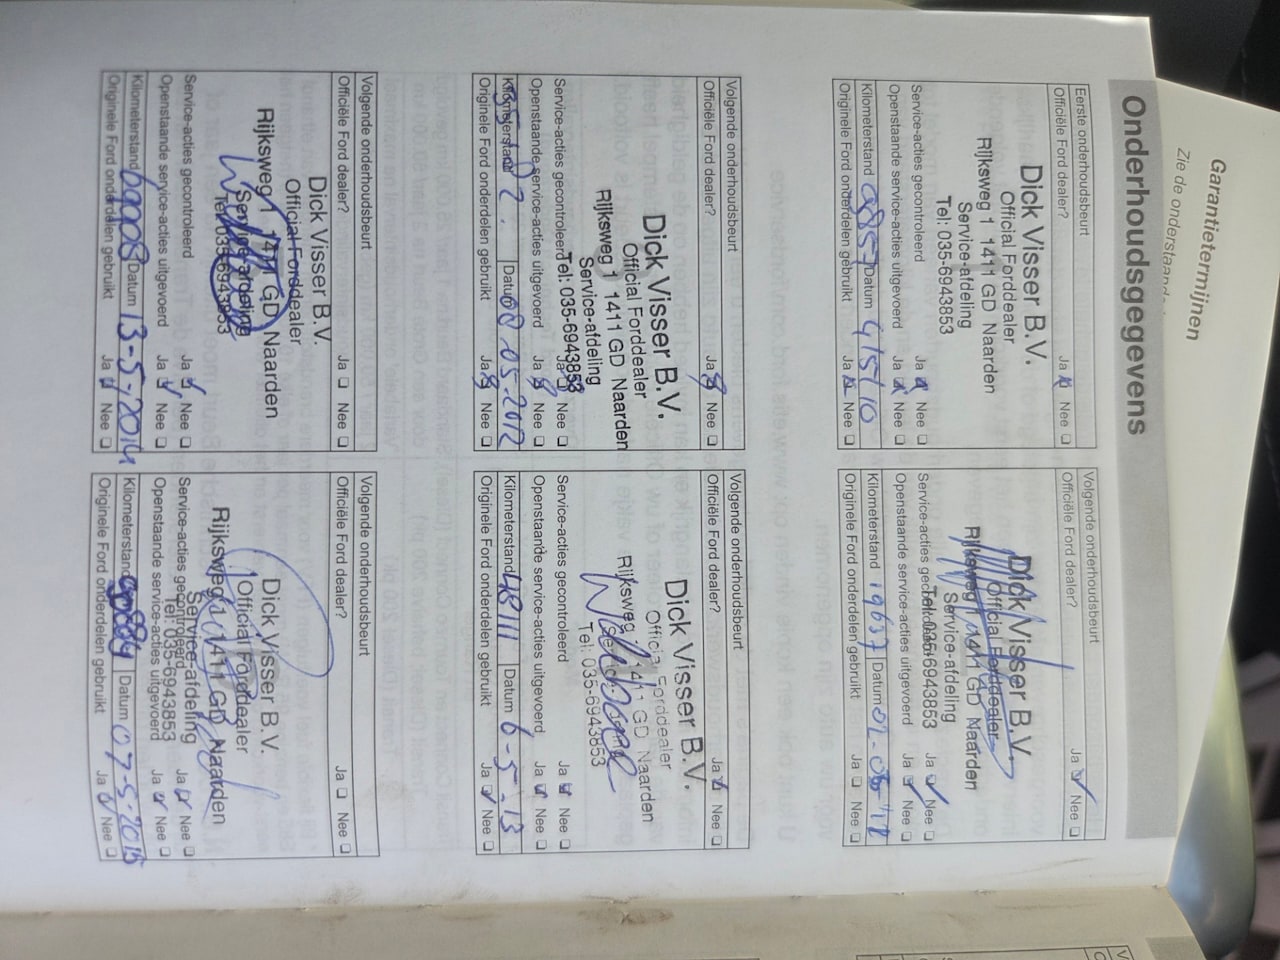 Garantietermijnen
Zie de onderstaande
Onderhoudsgegevens
Eerste onderhoudsbeurt
Officiële Ford dealer? Ja Nee
Dick Visser B.V.
Official Forddealer
Rijksweg 1 1411 GD Naarden
Service-afdeling
Tel: 035-6943853
Service-acties gecontroleerd Ja Nee
Openstaande service-acties uitgevoerd Ja Nee
Kilometerstand Datum 4/5/10
Originele Ford onderdelen gebruikt Ja Nee
Volgende onderhoudsbeurt
Officiële Ford dealer? Ja Nee
Dick Visser B.V.
Official Forddealer
Rijksweg 1 1411 GD Naarden
Service-afdeling
Tel: 035-6943853
Service-acties gecontroleerd Ja Nee
Openstaande service-acties uitgevoerd Ja Nee
Kilometerstand 19637 Datum
Originele Ford onderdelen gebruikt Ja Nee
Volgende onderhoudsbeurt
Officiële Ford dealer? Ja Nee
Dick Visser B.V.
Official Forddealer
Rijksweg 1 1411 GD Naarden
Service-afdeling
Tel: 035-6943853
Service-acties gecontroleerd Ja Nee
Openstaande service-acties uitgevoerd Ja Nee
Kilometerstand Datum 08-05-2012
Originele Ford onderdelen gebruikt Ja Nee
Volgende onderhoudsbeurt
Officiële Ford dealer? Ja Nee
Dick Visser B.V.
Official Forddealer
Rijksweg 1 1411 GD Naarden
Service-afdeling
Tel: 035-6943853
Service-acties gecontroleerd Ja Nee
Openstaande service-acties uitgevoerd Ja Nee
Kilometerstand 48111 Datum 6-5-13
Originele Ford onderdelen gebruikt Ja Nee
Volgende onderhoudsbeurt
Officiële Ford dealer? Ja Nee
Dick Visser B.V.
Official Forddealer
Rijksweg 1 1411 GD Naarden
Service-afdeling
Tel: 035-6943853
Service-acties gecontroleerd Ja Nee
Openstaande service-acties uitgevoerd Ja Nee
Kilometerstand Datum 13-5-2014
Originele Ford onderdelen gebruikt Ja Nee
Volgende onderhoudsbeurt
Officiële Ford dealer? Ja Nee
Dick Visser B.V.
Official Forddealer
Rijksweg 1 1411 GD Naarden
Service-afdeling
Tel: 035-6943853
Service-acties gecontroleerd Ja Nee
Openstaande service-acties uitgevoerd Ja Nee
Kilometerstand Datum 07-5-2015
Originele Ford onderdelen gebruikt Ja Nee